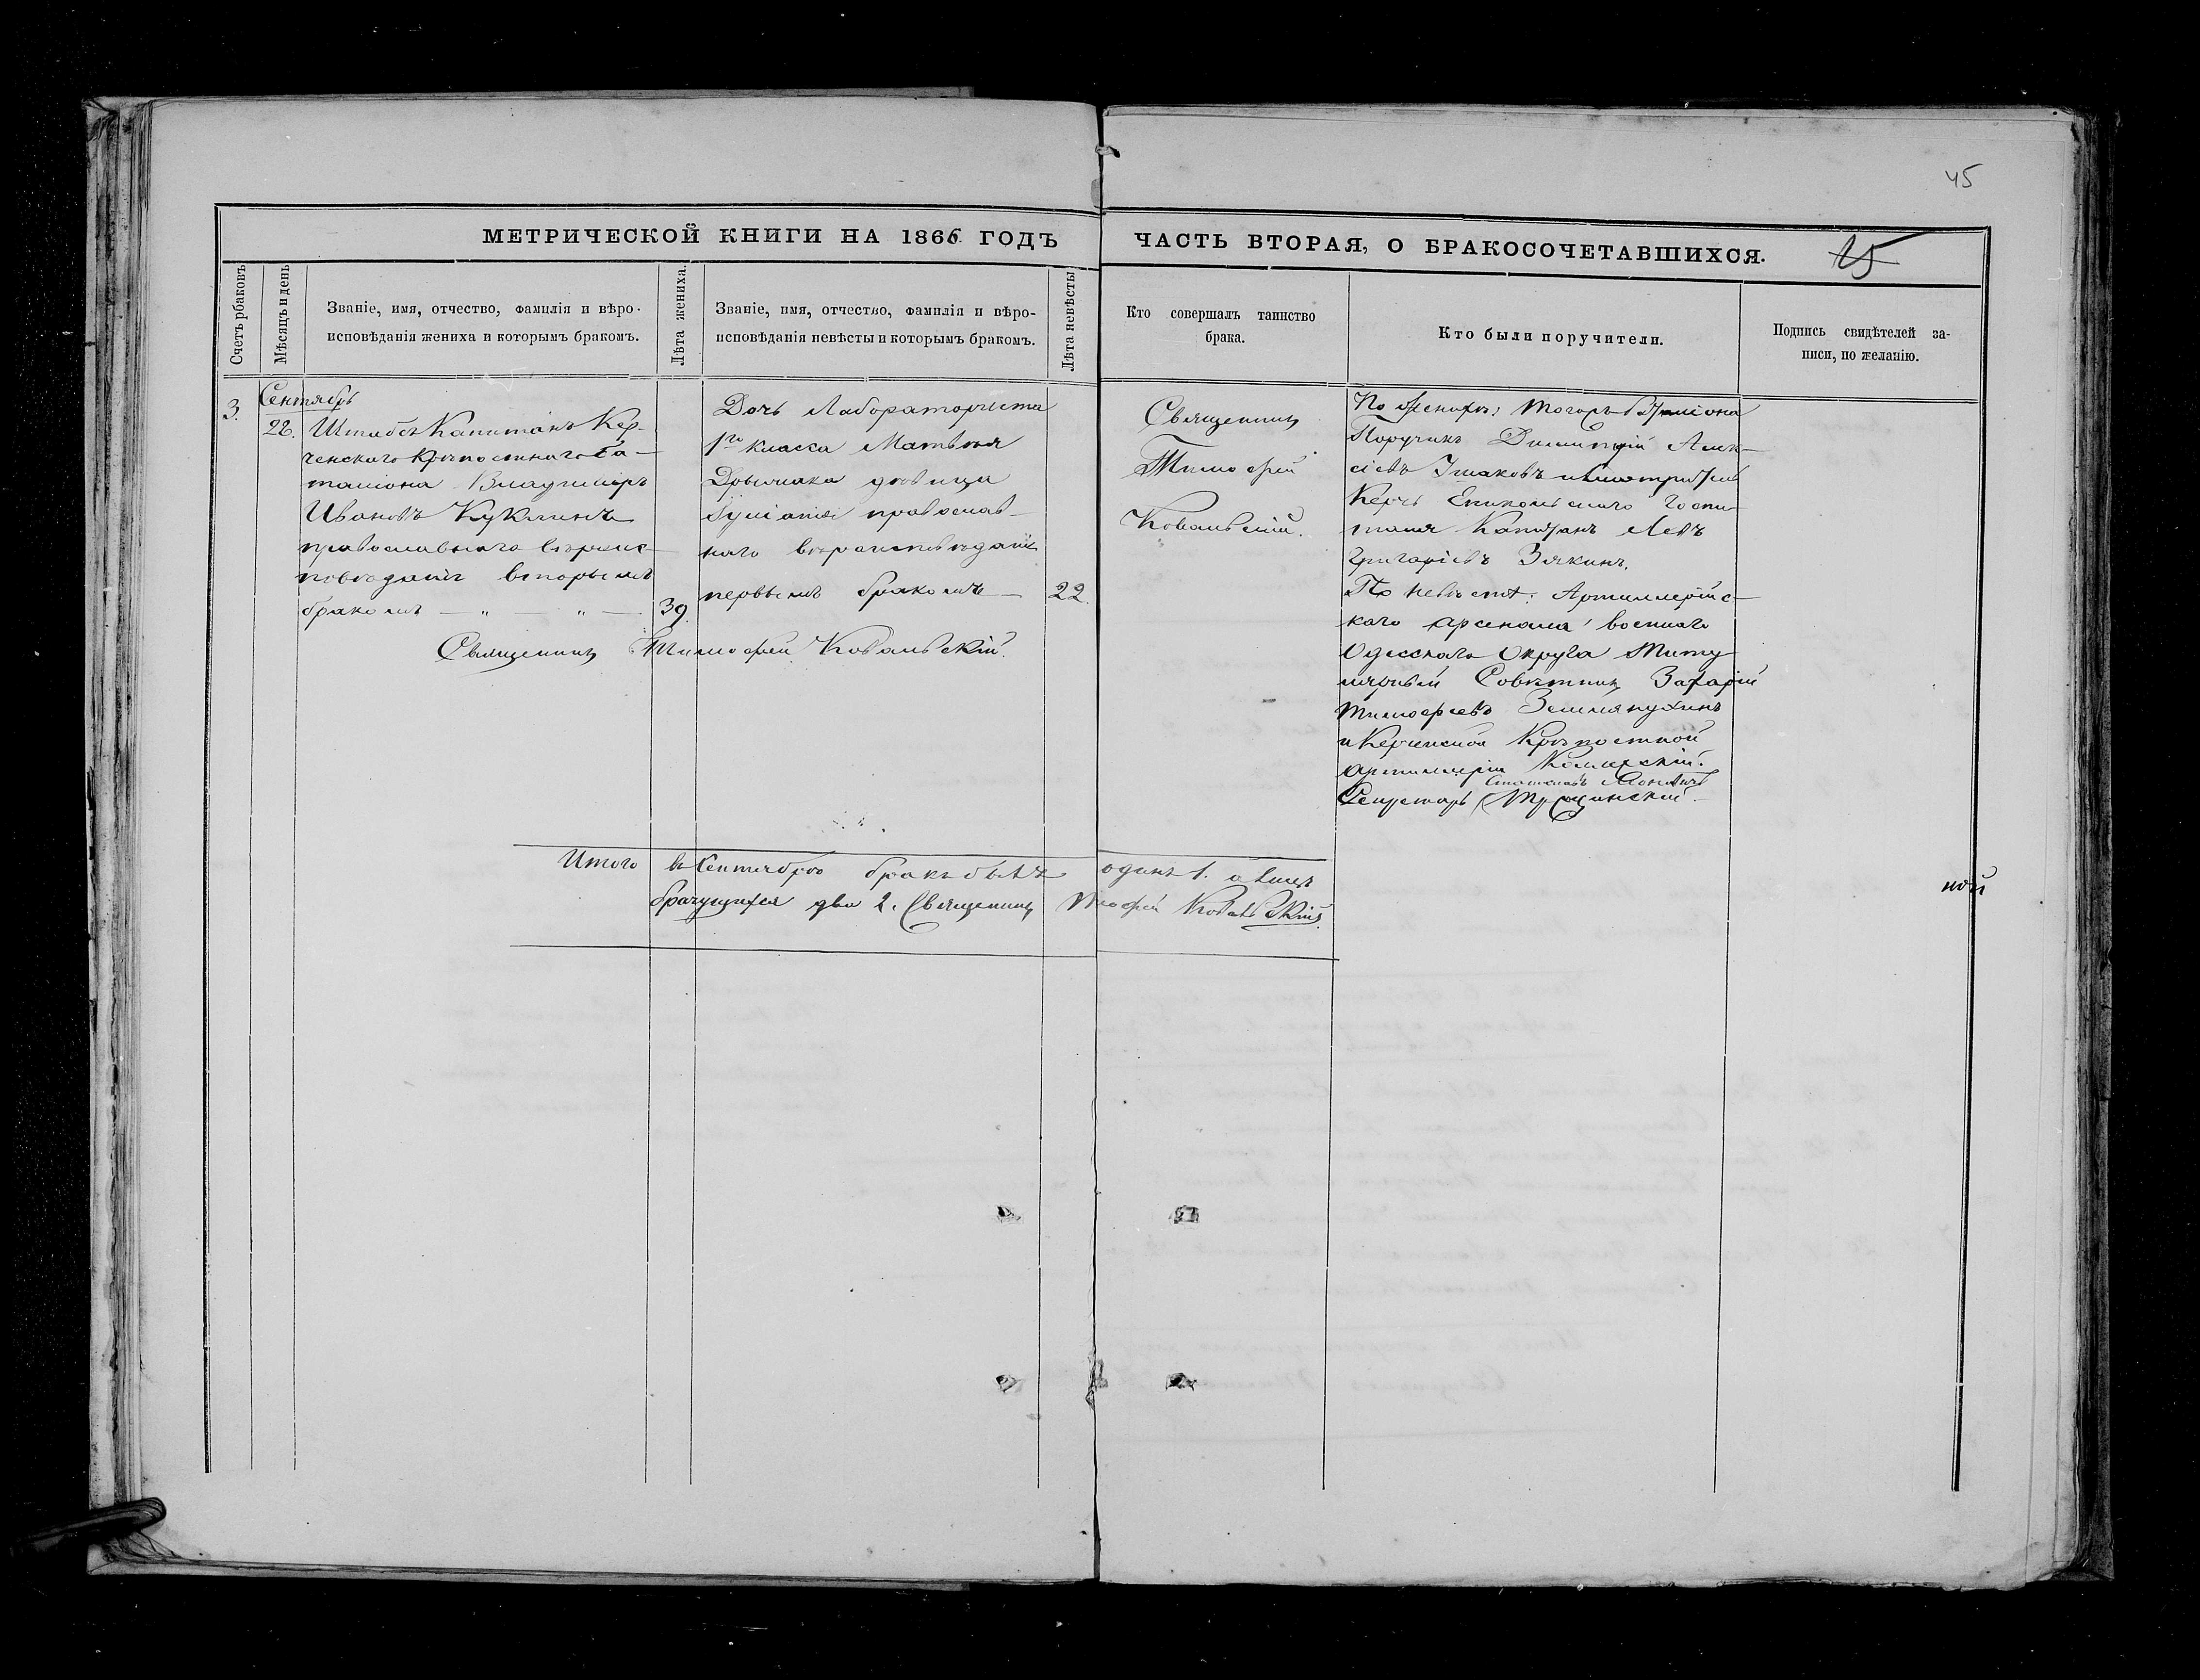 45
МЕТРИЧЕСКОЙ КНИГИ НА 1866 ГОДЪ
ЧАСТЬ ВТОРАЯ, О БРАКОСОЧЕТАВШИХСЯ.
15
Счетъ браковъ
Мѣсяцъ и день
Званіе, имя, отчество, фамилія и вѣро-
исповѣданія жениха и которымъ бракомъ.
Лѣта жениха.
Званіе, имя, отчество, фамилія и вѣро-
исповѣданія невѣсты и которымъ бракомъ.
Лѣта невѣсты
Кто совершалъ таинство
брака.
Кто были поручители.
Подпись свидѣтелей за-
писи, по желанію.
3.
Сентябрь
22.
Штабсъ Капитанъ Кер-
ченскаго Крѣпостнаго ба-
таліона Владиміръ
Ивановъ Куклинъ
православнаго вѣроис-
повѣданія вторымъ
бракомъ — „ — „ —
39.
Дочь Лабораторчиста
1го класса Матвѣя
девица
православ-
наго вѣроисповѣданія
первымъ бракомъ —
22.
Священникъ
Тимофей
Ковальскій.
По женихѣ: Тогожъ баталіона
Поручикъ Димитрій Алек-
сіевъ и Смотритель
Керчь Еникольскаго Госпи-
таля Капитанъ Левъ
Григоріевъ Зякинъ.
По невѣстѣ: Артиллерійс-
каго арсенала военнаго
Одесскаго Округа Титу
лярный Совѣтникъ Захарій
Тимофеевъ Землянухинъ
и Керченской Крѣпостной
артиллеріи
Секретарь
Священникъ Тимофей Ковальскій.
Итого въ Сентябрѣ бракъ былъ одинъ 1. а лицъ
брачущихся два 2. Священникъ Ковальскій.
ной